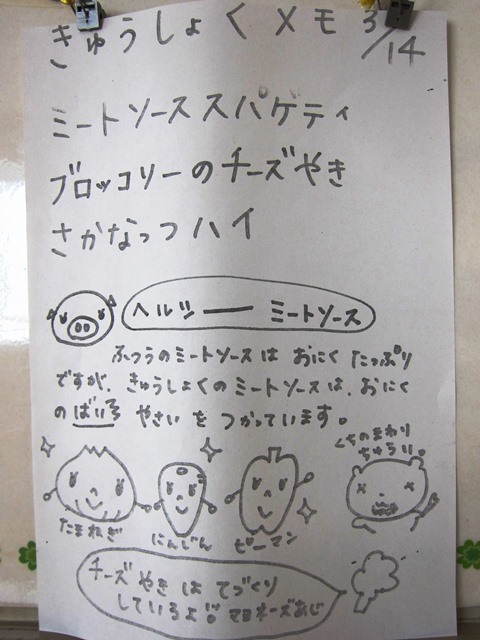 きゅうしょくメモ 3/14
ミートソーススパゲティ
ブロッコリーのチーズやき
さかなっつハイ
ヘルシーミートソース
ふつうのミートソースは おにく たっぷり
ですが、きゅうしょくのミートソースは、おにく
のばいろ やさいを つかっています。
くちのまわり
ちゅうい。
たまねぎ
にんじん
ピーマン
チーズ やき は てづくり
しているよ!! マヨネーズあじ